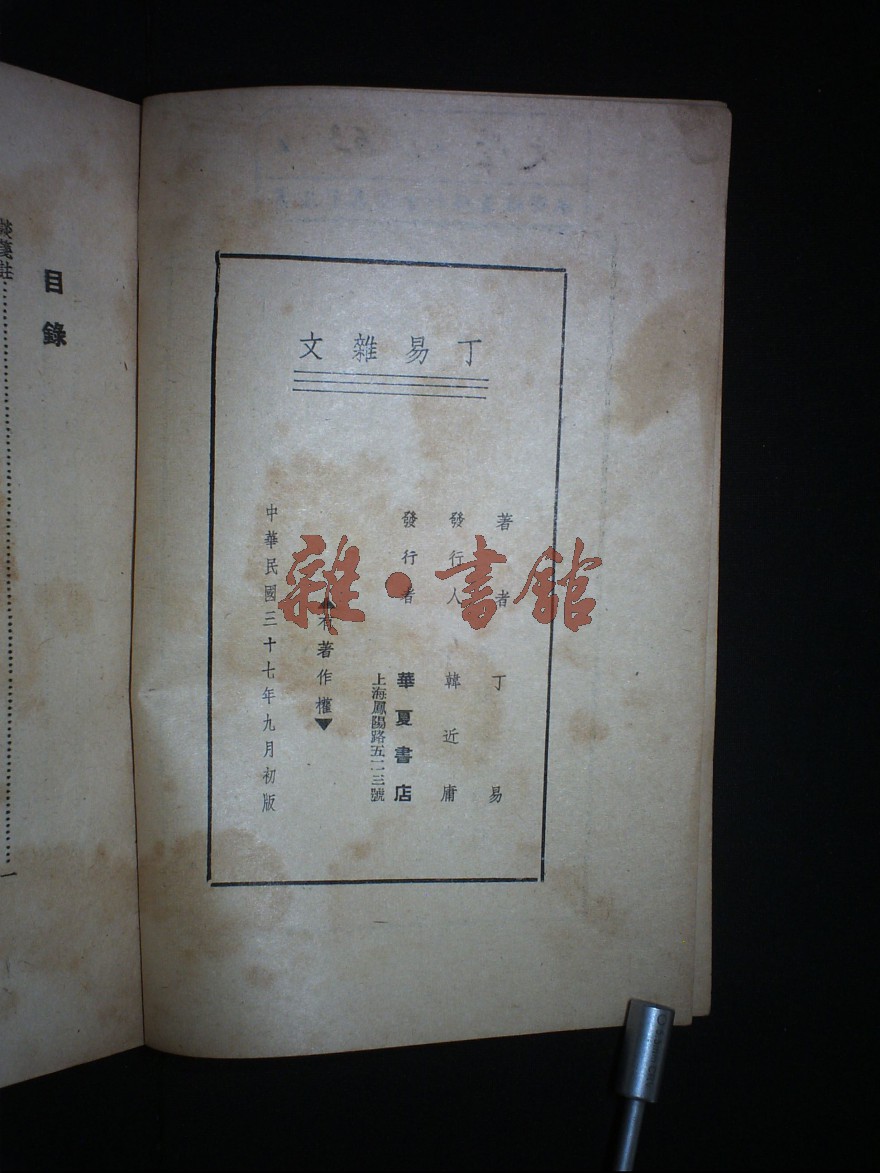 丁易雜文
著者 丁易
發行人 韓近庸
發行者 華夏書店
上海鳳陽路五二三號
▲有著作權▼
中華民國三十七年九月初版
雜·書館
目錄
談箋註……一